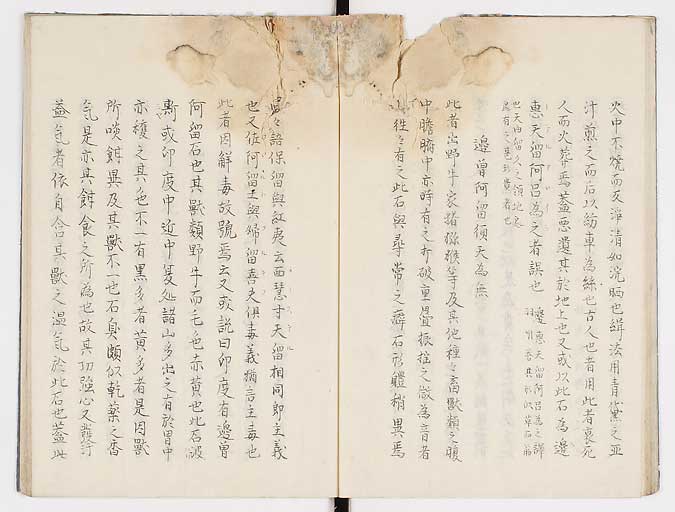 火中不燒而反淨清如浣晒也緝法用青黛之亚
汁煎之而后以紡車為絲也古人也者用此者裹死
人而火葬焉蓋恐遺其於地上也又或以此石為邊
惠天留阿呂為之者誤也
邊曾阿留須天為無
此者出野牛家猪猕猴羊及其他種々畜獸類之腹
中膽臍中亦時有之打破重疊振拄之微為音者
往々有之此石與尋常之癖石形體稍異焉
語保留與紅夷云西慧寸天留相同即主義
也又佐阿留主與婦留吾夫俱毒義猶言主毒也
此者因解毒故號焉云又或說曰印度有邊曽
阿留石也其獸類野牛而毛色赤黄也此石波
斯或印度中近中夏処諸山多出之有於胃中
亦種之其色不一有黒多者黄多者是因獸
所啖餌異及其獸不一也石臭頗似乾藥之香
氣是亦其餌食之所為也故其功強心又發汗
蓋氣者依自含其獸之温氣於此石也蓋此